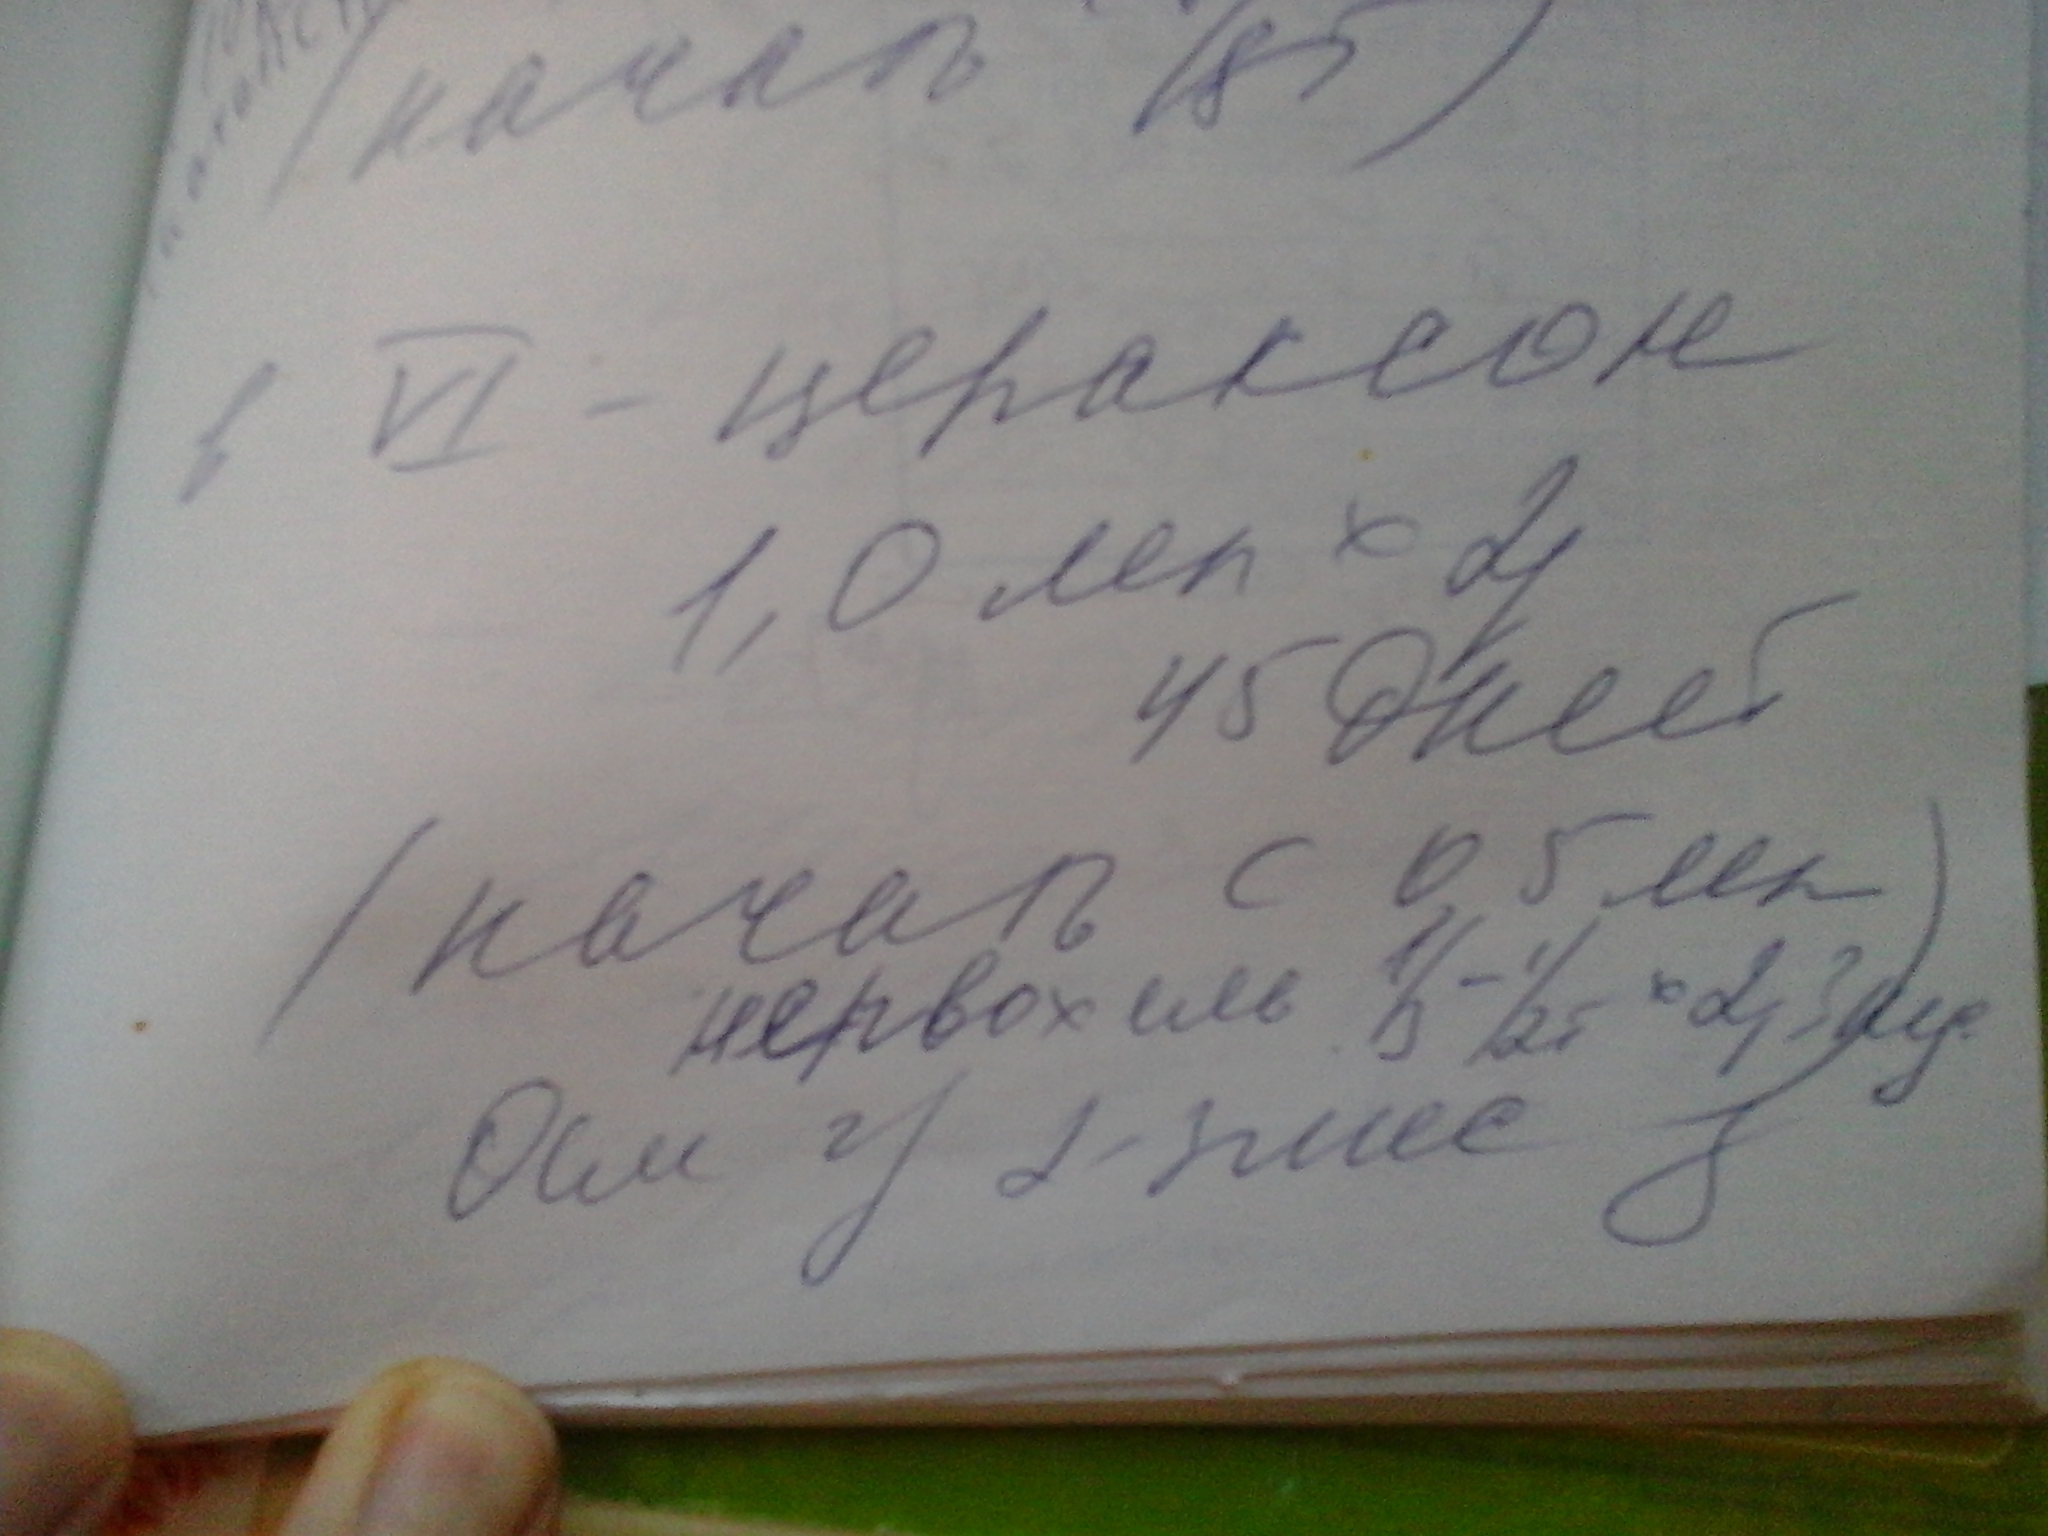 (начать 1/8 т)
в VI - цераксон
1,0 мл x 2 р
45 дней
(начать с 0 5 мл)
нервохель 1/3 - 1/2 т x 2 р 3 нед.
Осм ч/ 2-3 мес